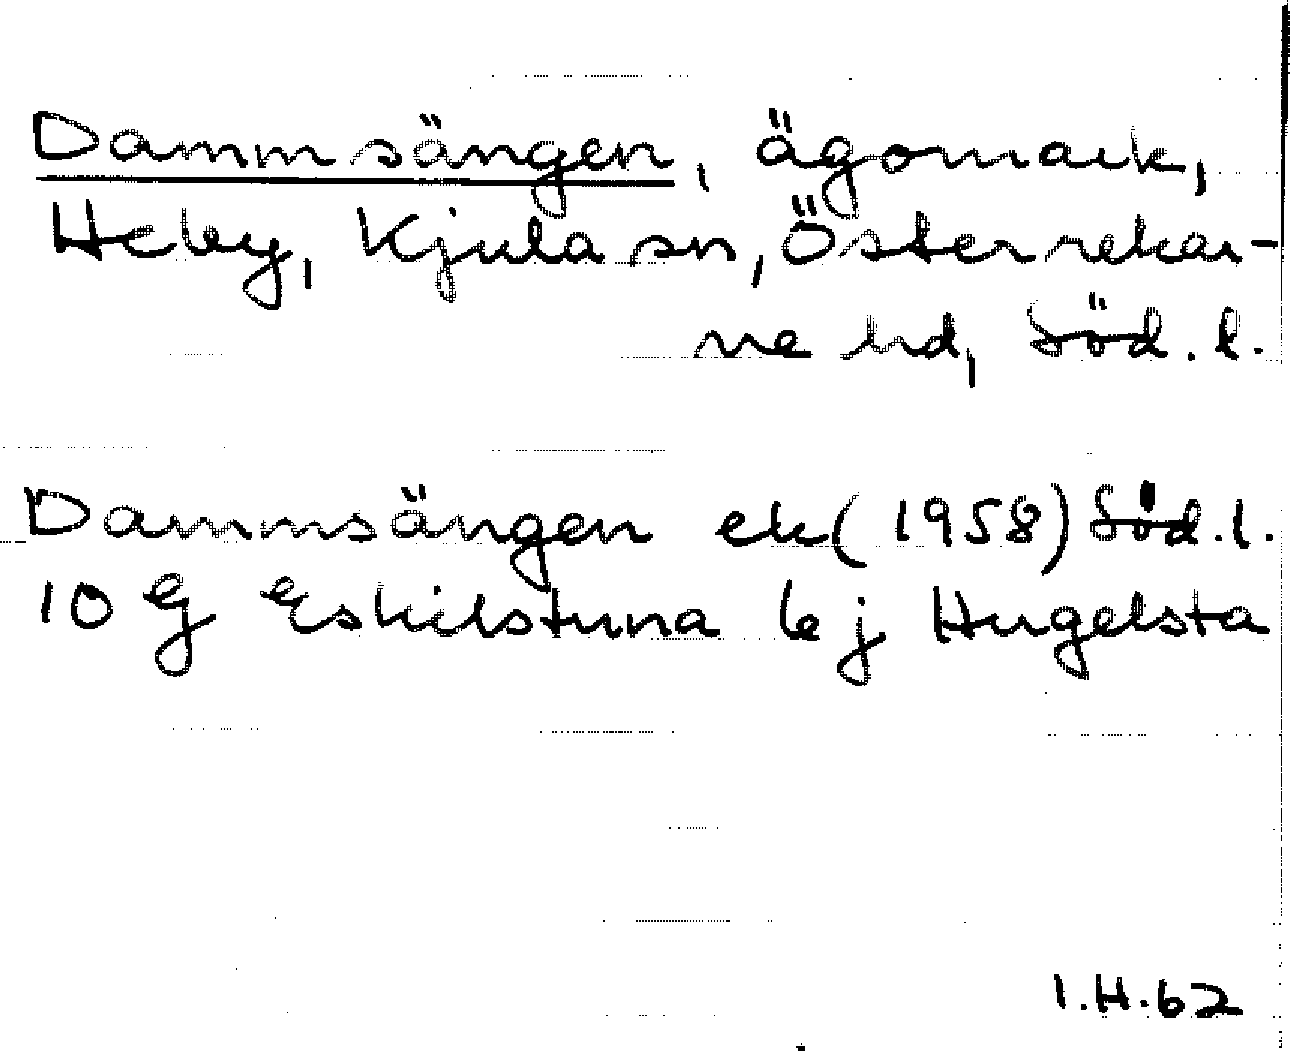 Dammsängen, ägomark,
Heby, Kjula sn, Österrekar-
ne hd, Söd. l.
Dammsängen ek (1958) Söd. l.
10 G Eskilstuna 6 j Hugelsta
I.H.62